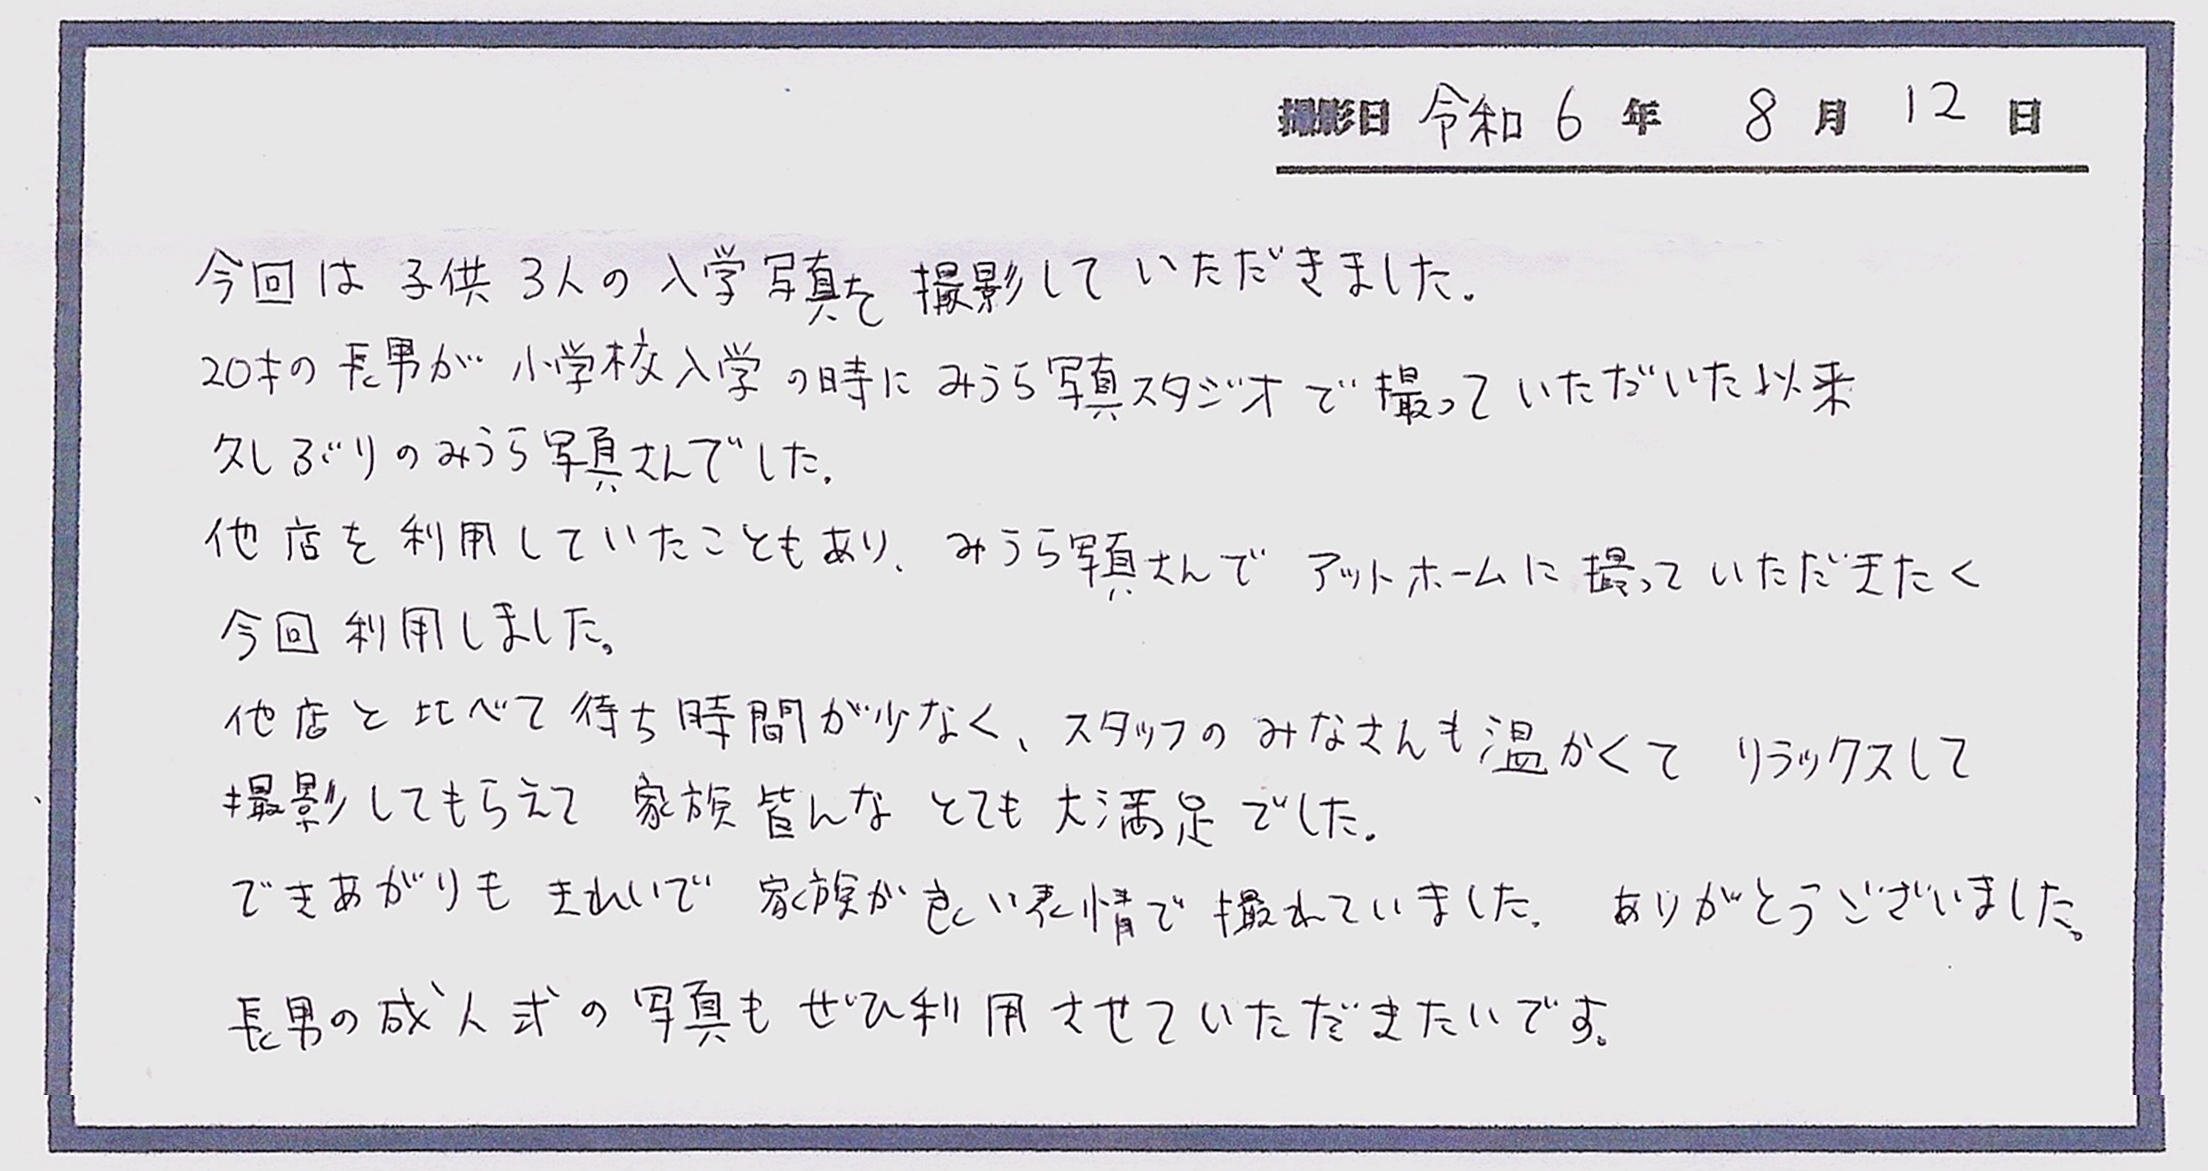 撮影日 令和6年 8月 12日
今回は子供3人の入学写真を撮影していただきました。
20才の長男が小学校入学の時にみうら写真スタジオで撮っていただいた以来
久しぶりのみうら写真さんでした。
他店を利用していたこともあり、みうら写真さんでアットホームに撮っていただきたく
今回利用しました。
他店と比べて待ち時間が少なく、スタッフのみなさんも温かくてリラックスして
撮影してもらえて家族皆んなとても大満足でした。
できあがりもきれいで家族が良い表情で撮れていました。ありがとうございました。
長男の成人式の写真もぜひ利用させていただきたいです。